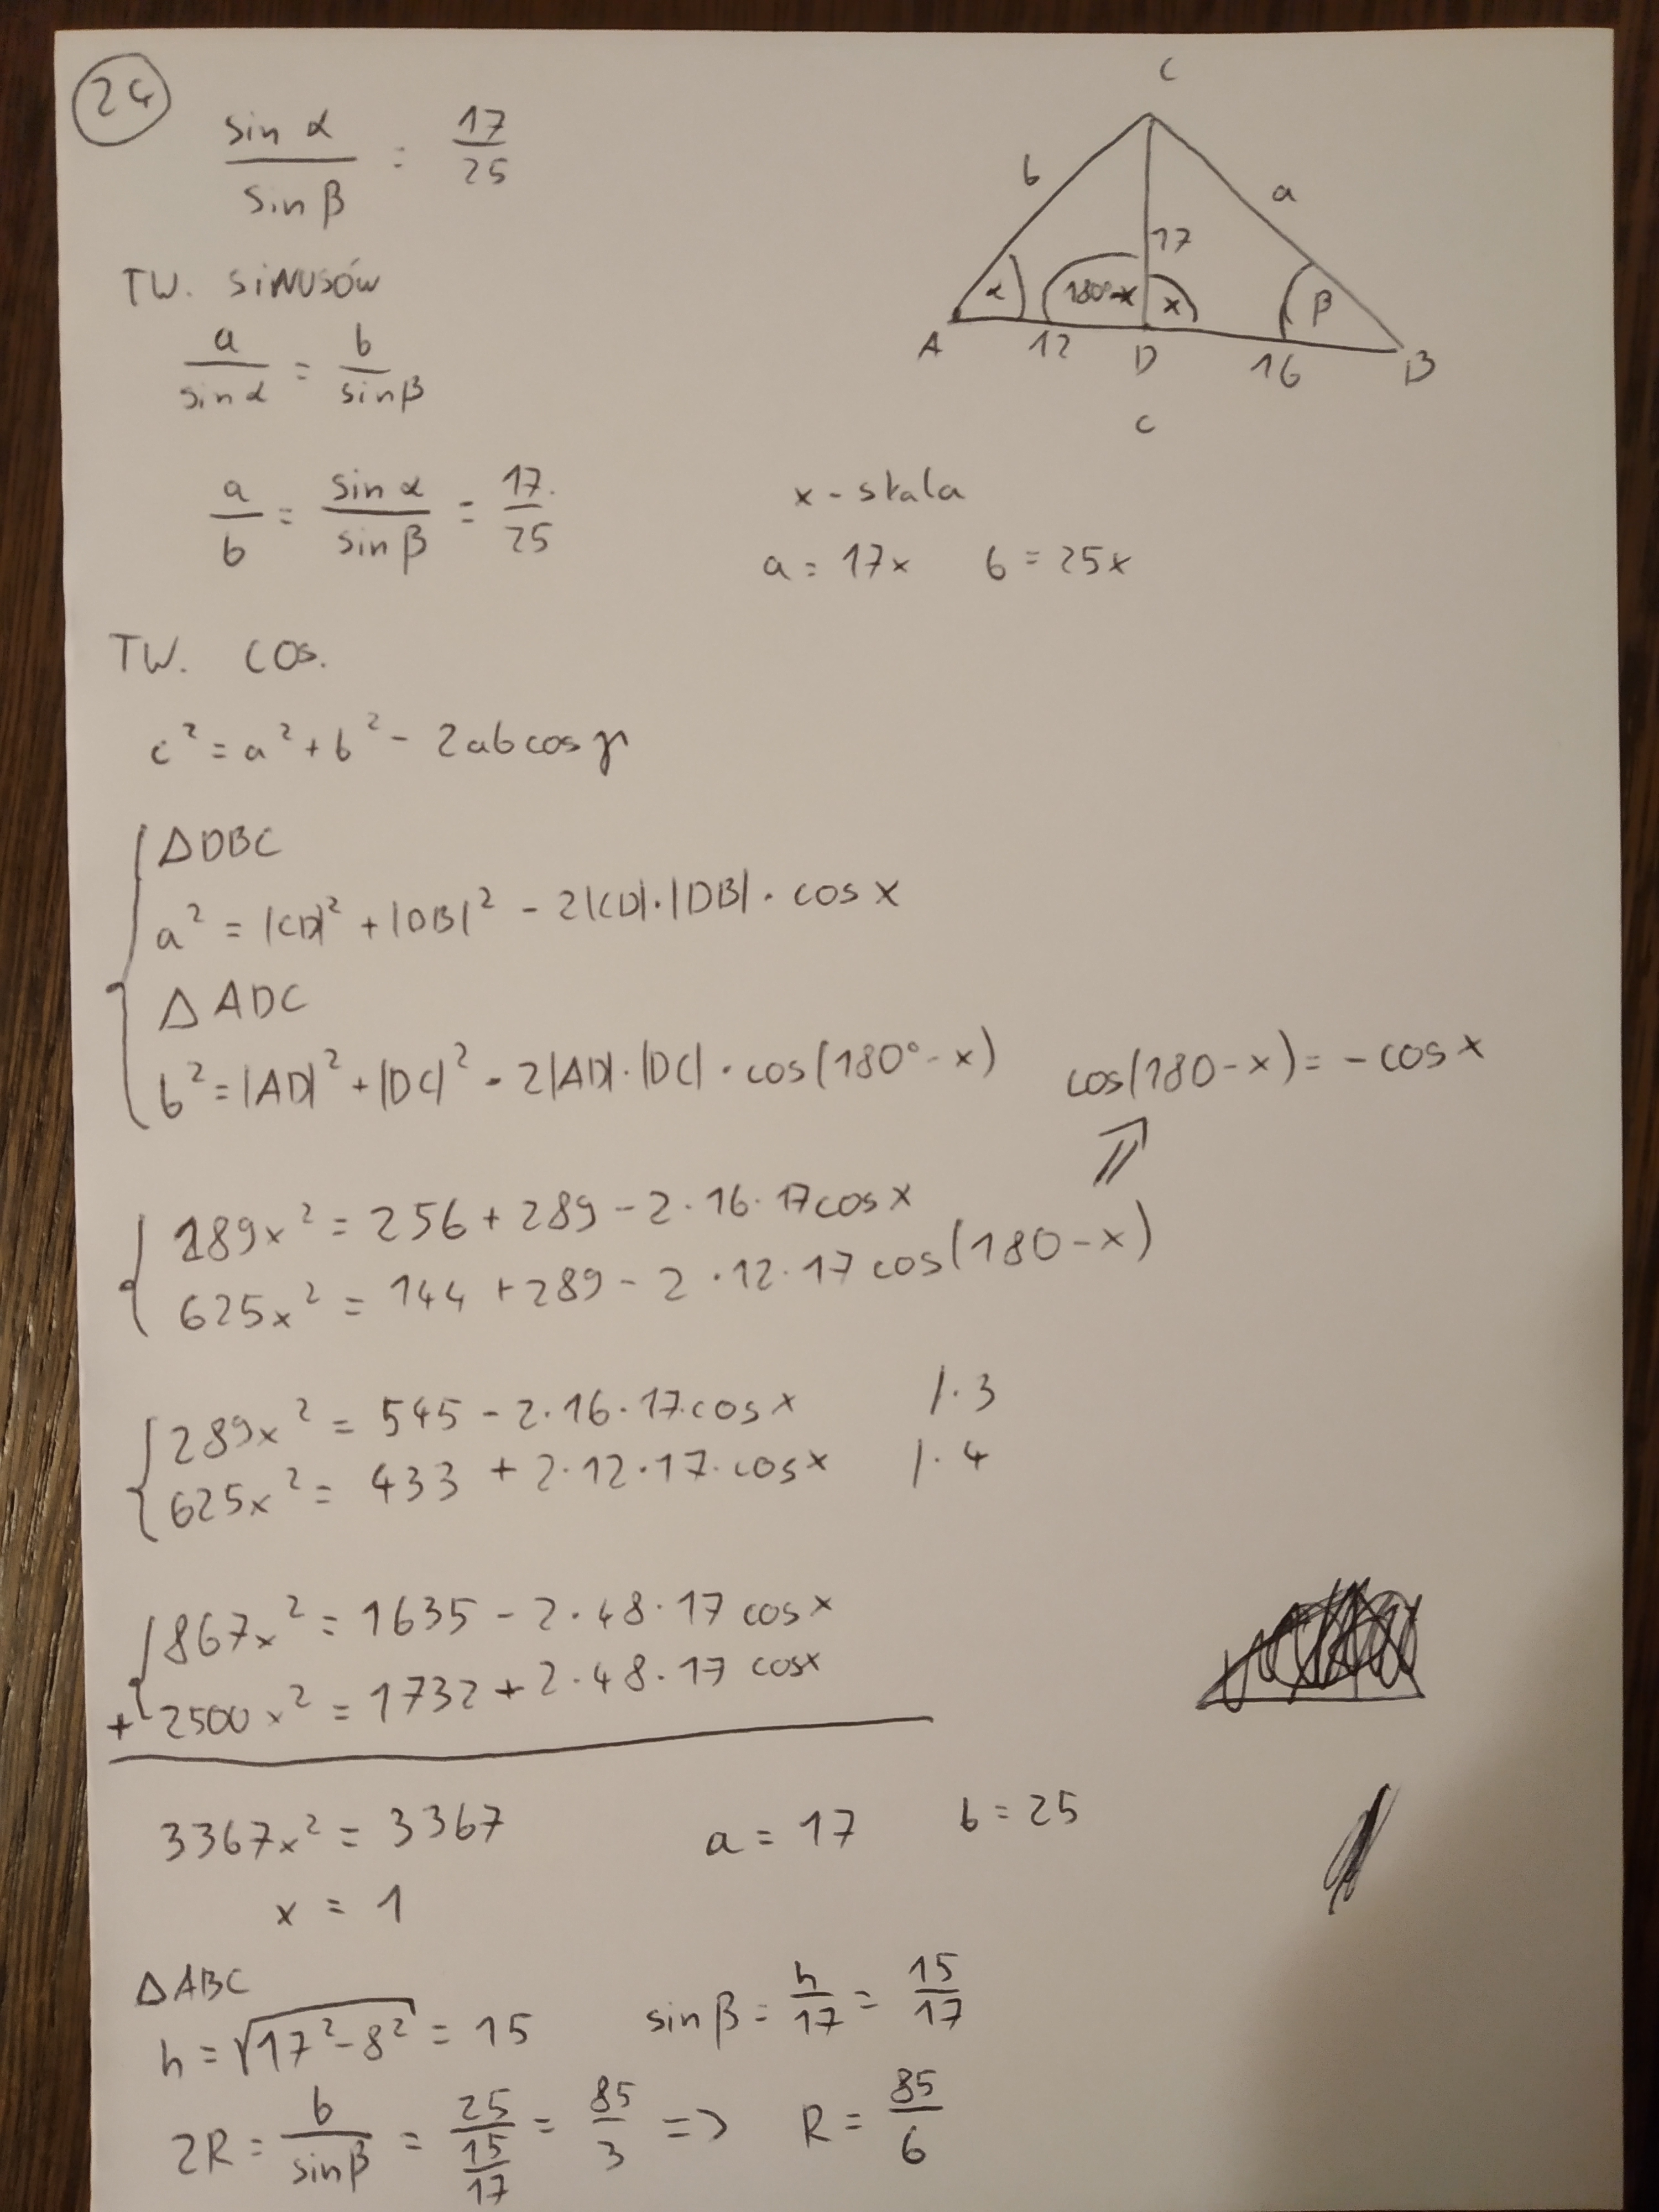 24
sin α / sin β = 17/25
C
b
a
17
α
180°-x
x
β
A
12
D
16
B
c
TW. SINUSÓW
a / sin α = b / sin β
a/b = sin α / sin β = 17/25
x - skala
a = 17x b = 25x
TW. COS.
c² = a² + b² - 2ab cos γ
△DBC
a² = |CD|² + |DB|² - 2|CD|·|DB|· cos x
△ADC
b² = |AD|² + |DC|² - 2|AD|·|DC|· cos(180° - x)
cos(180 - x) = - cos x
289x² = 256 + 289 - 2·16·17 cos x
625x² = 144 + 289 - 2·12·17 cos(180 - x)
289x² = 545 - 2·16·17·cos x /·3
625x² = 433 + 2·12·17·cos x /·4
867x² = 1635 - 2·48·17 cos x
+ 2500x² = 1732 + 2·48·17 cos x
3367x² = 3367
a = 17 b = 25
x = 1
△ABC
h = √(17² - 8²) = 15
sin β = h/17 = 15/17
2R = b / sin β = 25 / (15/17) = 85/3 => R = 85/6